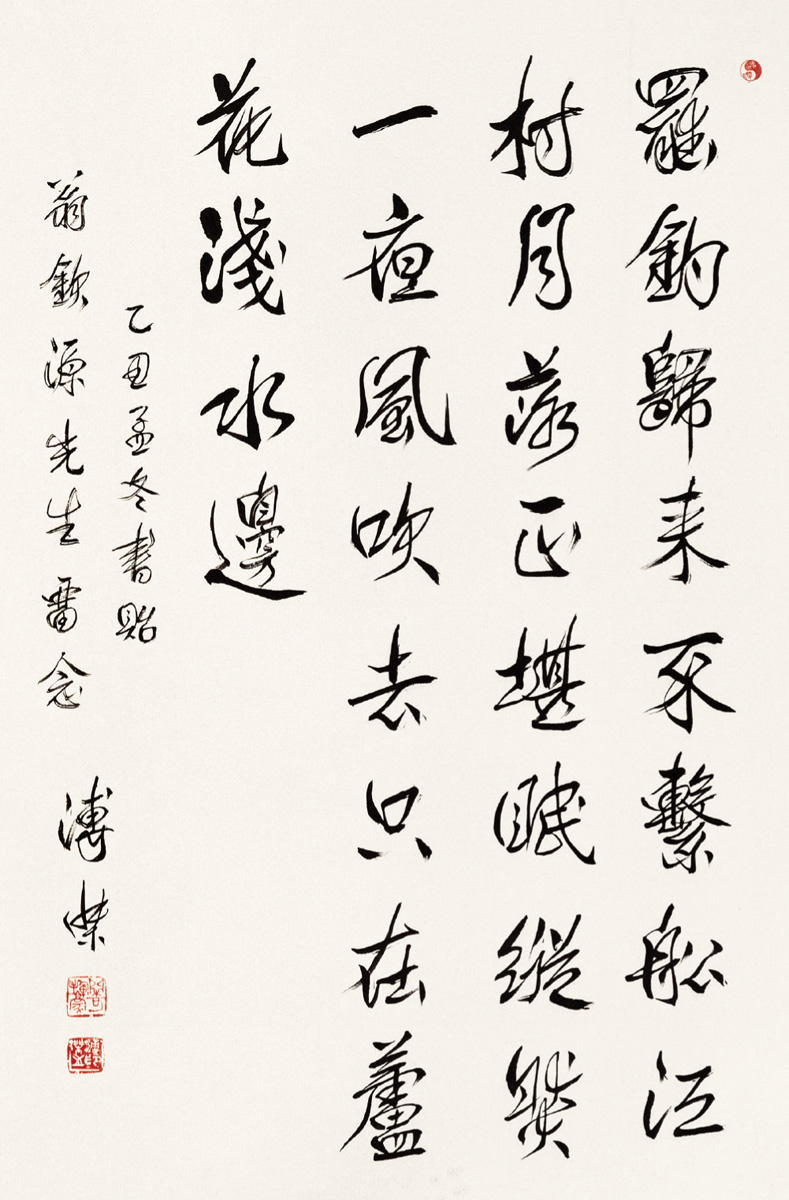 罷釣歸来不繫船江
村月落正堪眠縱然
一夜風吹去只在蘆
花淺水邊
乙丑孟冬書貽
翁欽源先生留念
溥傑